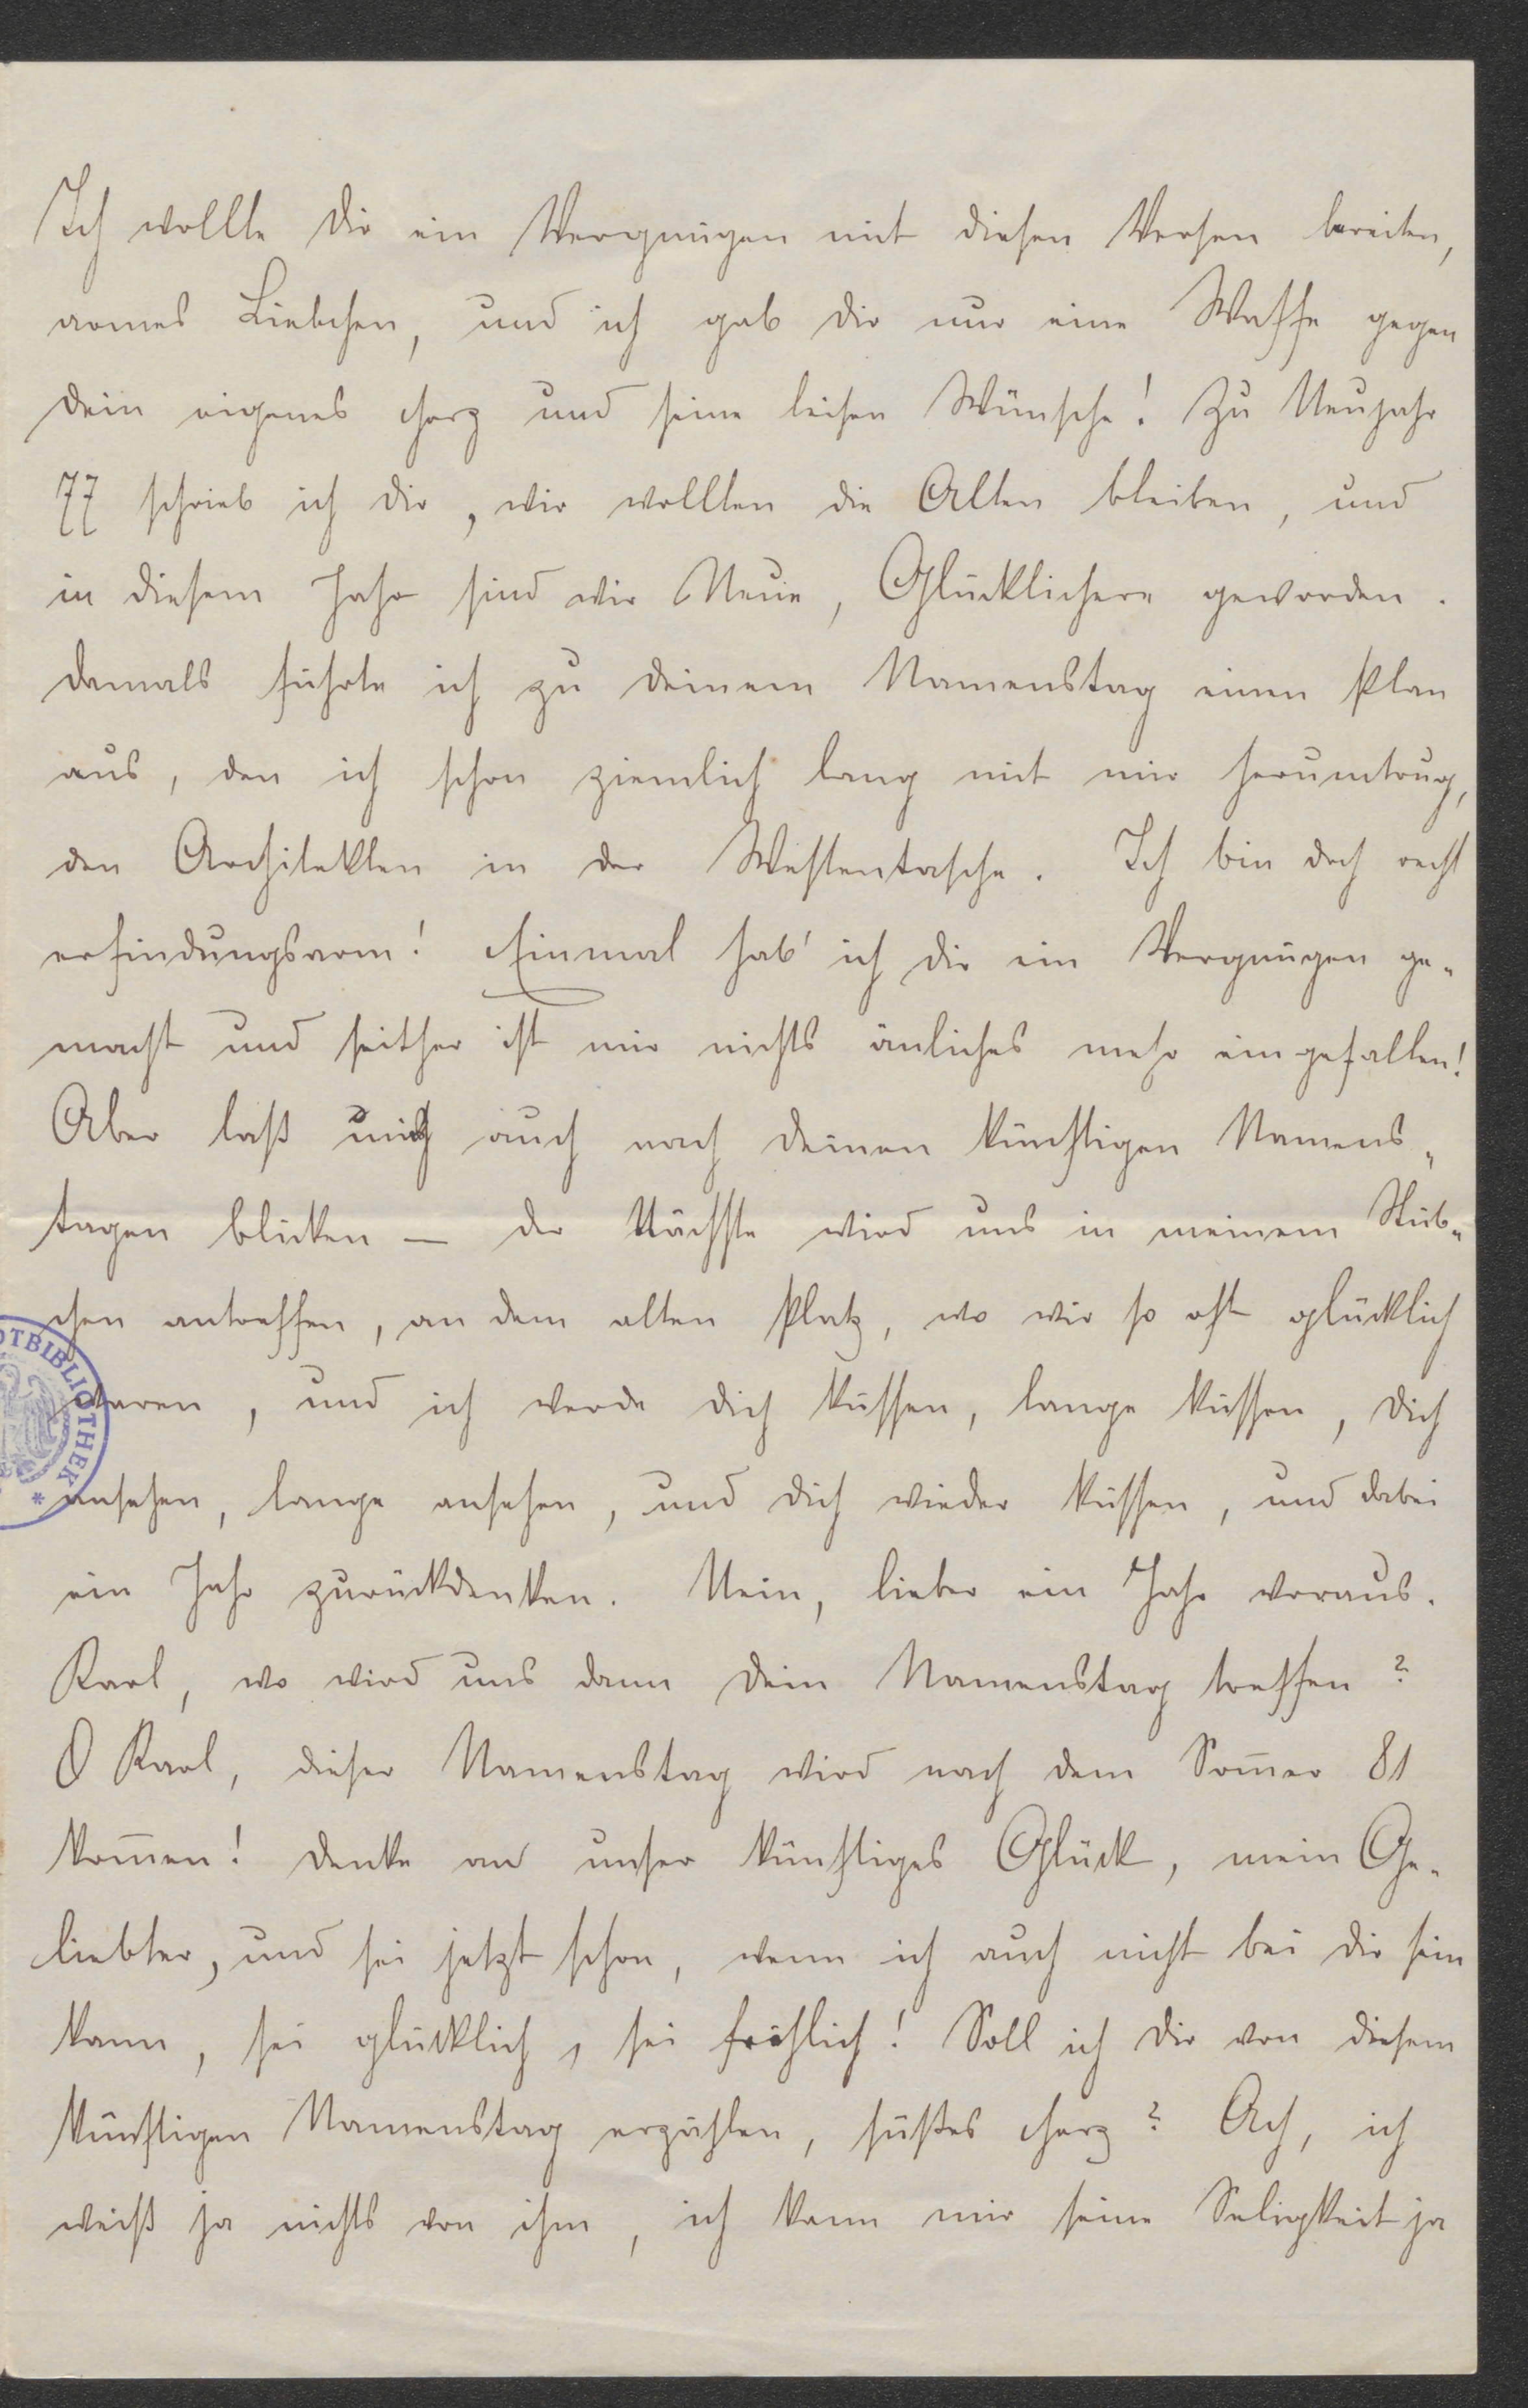 Ich wollte dir ein Vergnügen mit diesen Versen bereiten,
armes Liebchen, und ich gab dir nur eine Waffe gegen
dein eigenes Herz und seine leisen Wünsche! Zu Neujahr
77 schrieb ich dir, wir wollten die Alten bleiben, und
in diesem Jahr sind wir Neue, Glücklichere geworden.
Damals führte ich zu deinem Namenstag einen Plan
aus, den ich schon ziemlich lang mit mir herumtrug,
den Architekten in der Westentasche. Ich bin doch recht
erfindungsarm! Einmal hab' ich dir ein Vergnügen ge-
macht und seither ist mir nichts änliches mehr eingefallen!
Aber laß mich auch nach deinen künftigen Namens-
tagen blicken – der Nächste wird uns in meinem Stüb-
chen antreffen, an dem alten Platz, wo wir so oft glücklich
waren, und ich werde dich küssen, lange küssen, dich
ansehen, lange ansehen, und dich wieder küssen, und dabei
ein Jahr zurückdenken. Nein, lieber ein Jahr voraus.
Karl, wo wird uns dann dein Namenstag treffen?
O Karl, dieser Namenstag wird nach dem Som̅er 81
kom̅en! Denke an unser künftiges Glück, mein Ge-
liebter, und sei jetzt schon, wenn ich auch nicht bei dir sein
kann, sei glücklich, sei fröhlich! Soll ich dir von diesem
künftigen Namenstag erzählen, süßes Herz? Ach, ich
weiß ja nichts von ihm, ich kann mir seine Seligkeit ja
OTBIBLIOTHEK *